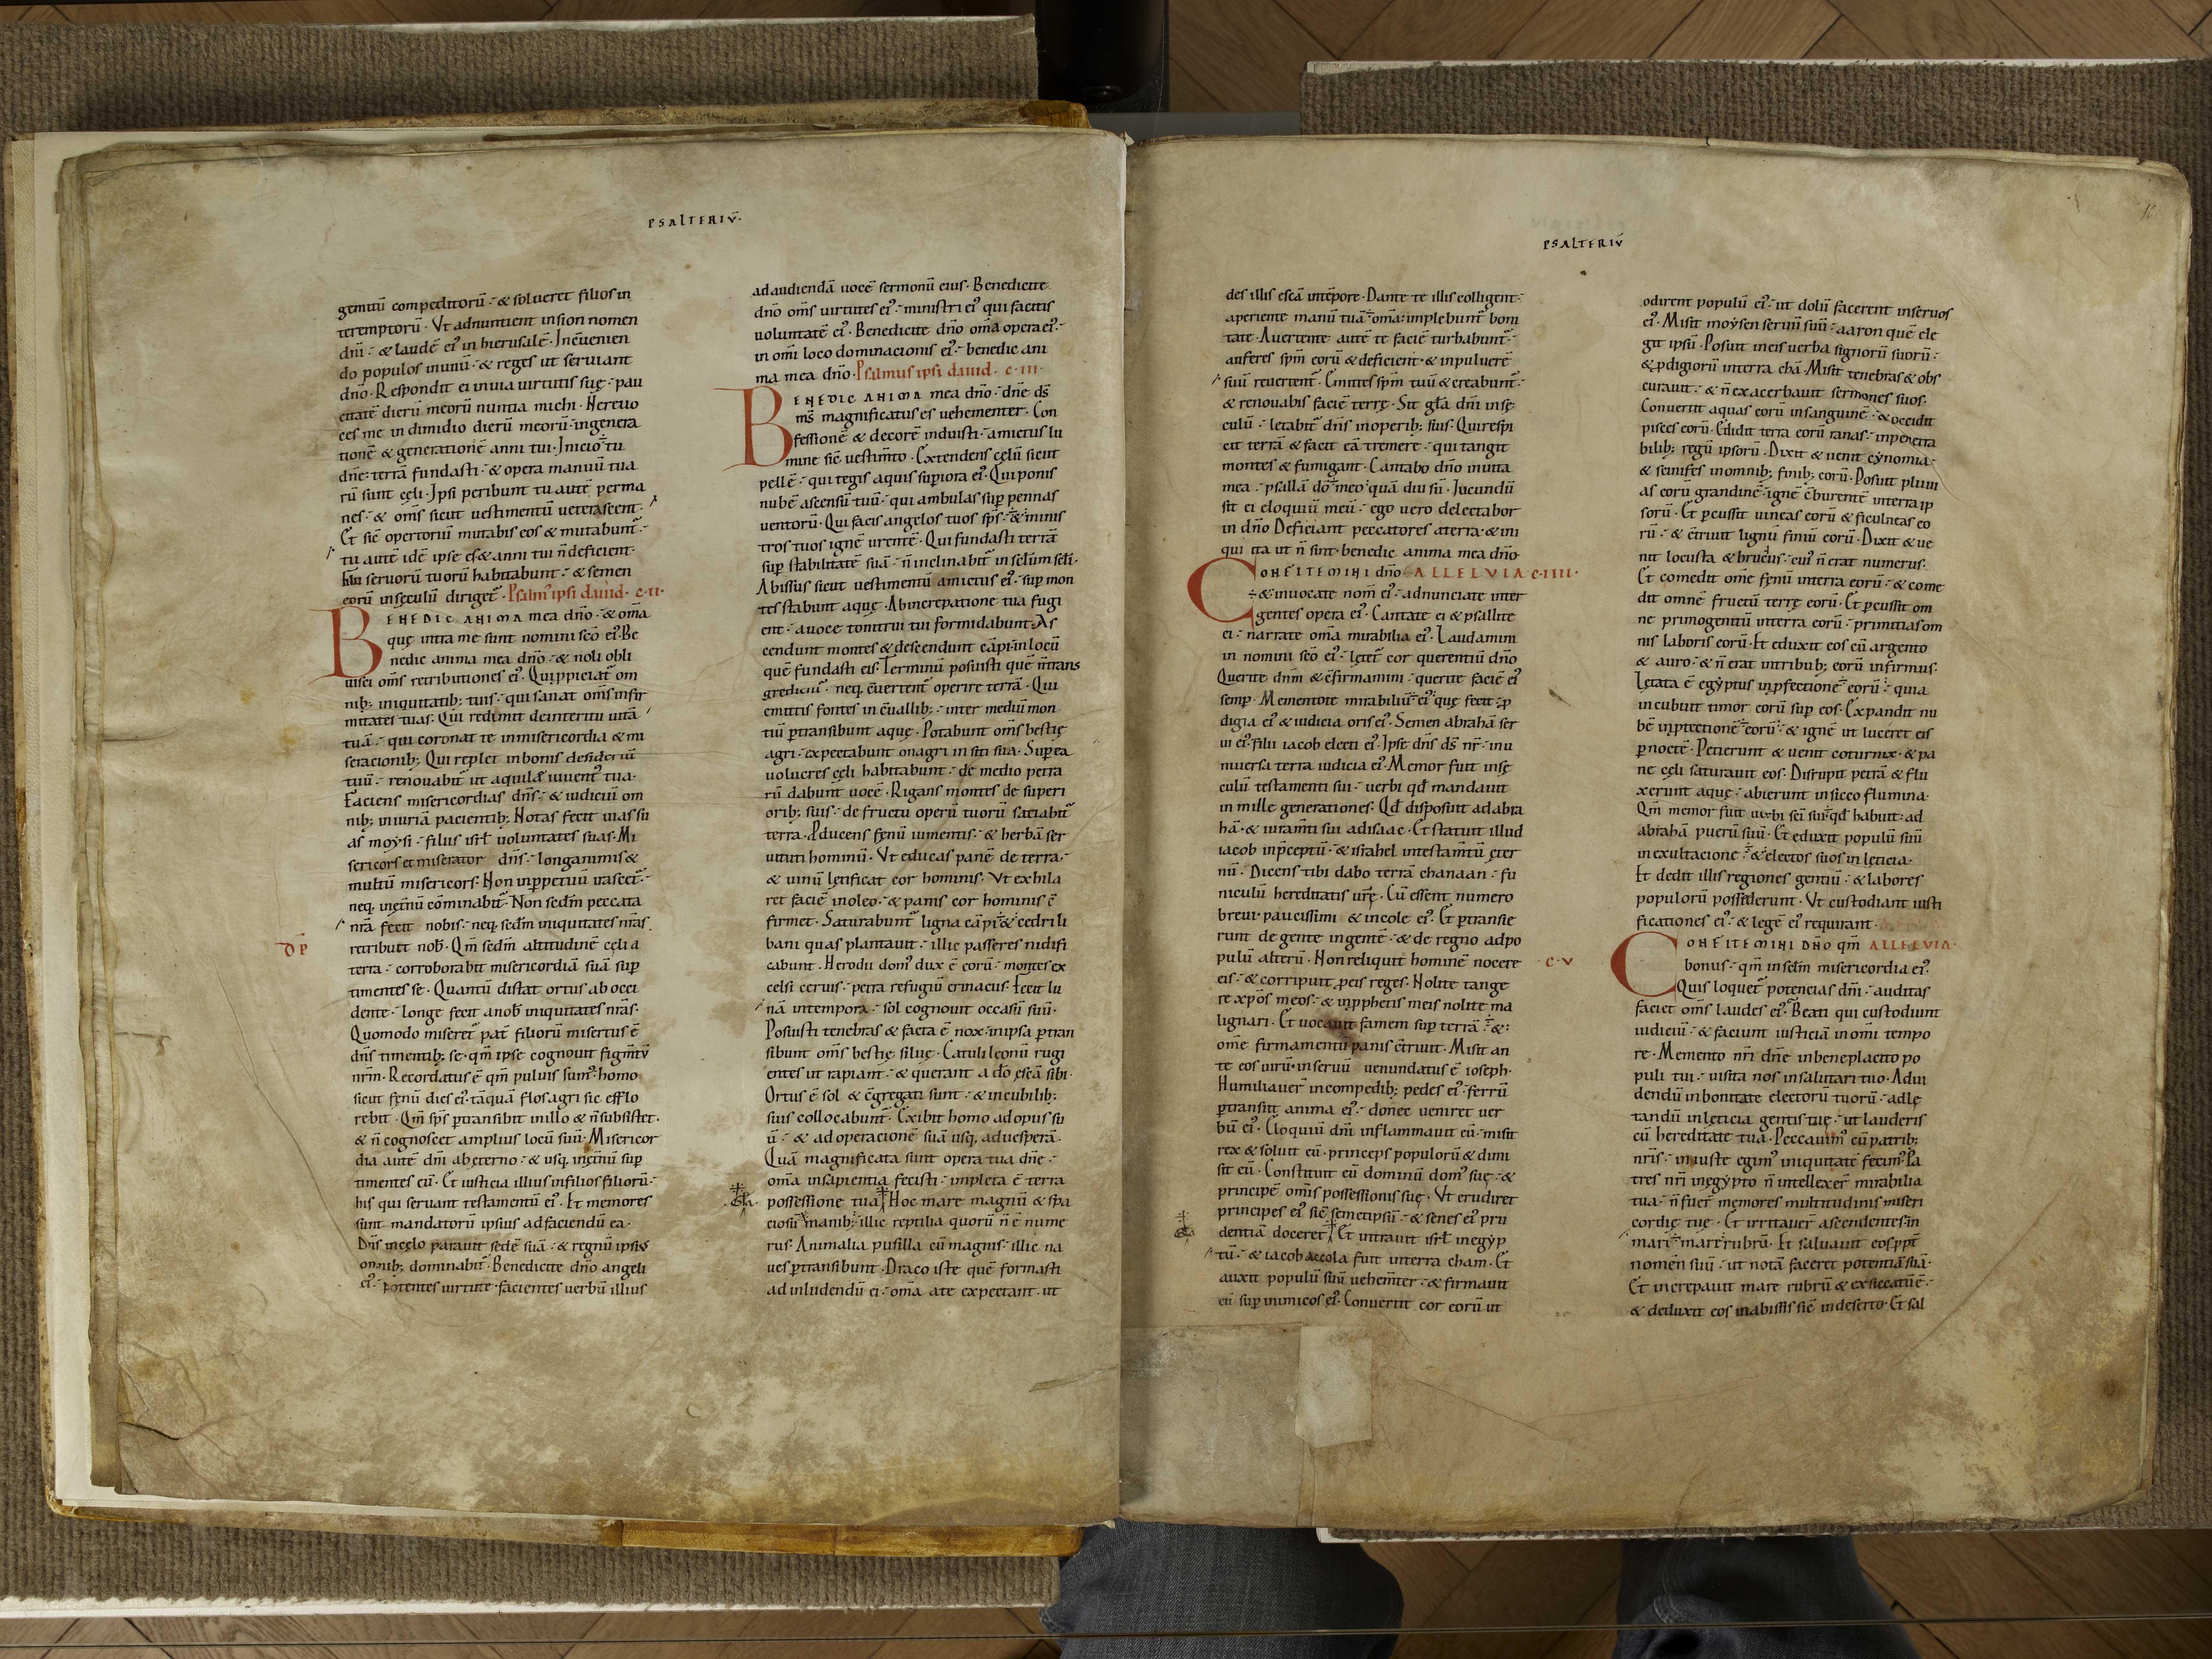 PSALTERIŪ·
gemitū compeditorū·⁊ & solueret filios in
teremptorū · Vt adnuntient in sion nomen
dn̄i · & laudē ei᾽ in hierusalē · In cōuenien
do populos in unū · & reges ut seruiant
dn̄o · Respondit ei in uia uirtutis suę · pau
citatē dierū meorū nuntia michi · Ne reuo
ces me in dimidio dierū meorū · in genera
tionē & generationē anni tui · Inicio tu
dn̄e terrā fundasti · & opera manuū tua
rū sunt cęli · Ipsi peribunt tu autē perma
nes · & om̄s sicut uestimentū ueterascent·
Et sic̄ opertoriū mutabis eos & mutabunt̄ ·
tu autē idē ipse es & anni tui n̄ deficient·
filii seruorū tuorū habitabunt · & semen
eorū in sęculū diriget̄ · Psalm᾽ ipsi dauid · c·ii·
BENEDIC ANIMA mea dn̄o · & om̄a
quę intra me sunt nomini sc̄o ei᾽ · Be
nedic anima mea dn̄o · & noli obli
uisci om̄s retributiones ei᾽ · Qui ppiciat̄ om
nib; iniquitatib; tuis · qui sanat om̄s infir
mitates tuas · Qui redimit de interitu uitā
tuā · qui coronat te in misericordia & mi
seracionib; Qui replet in bonis desideriū
tuū · renouabit̄ ut aquilę iuuent᾽ tua·
Faciens misericordias dn̄s · & iudiciū om
nib; iniuriā pacientib; Notas fecit uias su
as moẏsi · filiis isrl̄ uoluntates suas · Mi
sericors et miserator dn̄s · longanimis &
multū misericors · Non in ppetuū irascet̄ ·
neq, in ęt̄nū cominabit̄ · Non sedm̄ peccata
nr̄a fecit nobis · neq, sedm̄ iniquitates nr̄as
retribuit nob̄ · Qm̄ sedm̄ altitudinē cęli a
terra · corroborabit misericordiā suā sup
timentes se · Quantū distat ortus ab occi
dente · longe fecit a nob̄ iniquitates nr̄as·
Quomodo miseret̄ pat̄ filiorū misertus ē
dn̄s timentib; se · qm̄ ipse cognouit figmt̄ū
nrm̄ · Recordatus ē qm̄ puluis sum᾽ · homo
sicut fęnū dies ei᾽ · tāquā flos agri sic efflo
rebit · Qm̄ sp̄s ptransibit in illo & n̄ subsistet·
& n̄ cognoscet amplius locū suū · Misericor
dia autē dn̄i ab ęterno · & usq, in ęt̄nū sup
timentes eū · Et iusticia illius in filios filiorū ·
his qui seruant testamentū ei᾽ · Et memores
sunt mandatorū ipsius ad faciendū ea·
Dn̄s in cęlo parauit sedē suā · & regnū ipsi᾽
omnib; dominabit̄ · Benedicite dn̄o angeli
ei᾽ · potentes uirtute · facientes uerbū illius
ad audiendā uocē sermonū eius · Benedicite
dn̄o om̄s uirtutes ei᾽ · ministri ei᾽ qui facitis
uoluntatē ei᾽ · Benedicite dn̄o om̄a opera ei᾽ ·
in om̄i loco dominacionis ei᾽ · benedic ani
ma mea dn̄o · Psalmus ipsi dauid · c·iii·
BENEDIC ANIMA mea dn̄o · dn̄e ds̄
ms̄ magnificatus es uehementer · Con
fessionē & decorē induisti · amictus lu
mine sic̄ uestimto · Extendens cęlū sicut
pellē · qui tegis aquis supiora ei᾽ · Qui ponis
nubē ascensū tuū · qui ambulas sup pennas
uentorū · Qui facis angelos tuos sp̄s · & minis
tros tuos ignē urentē · Qui fundasti terrā
sup stabilitatē suā · n̄ inclinabit̄ in sclm̄ scl̄i ·
Abissus sicut uestimentū amictus ei᾽ · sup mon
tes stabunt aquę · Ab increpatione tua fugi
ent · a uoce tonitrui tui formidabunt · As
cendunt montes & descendunt cāpi · in locū
quē fundasti eis · Terminū posuisti quē n̄ trans
gredient̄ · neq, cūertent̄ operire terrā · Qui
emittis fontes in cūallib; · inter mediū mon
tiū ptransibunt aquę · Potabunt om̄s bestię
agri · expectabunt onagri in siti sua · Sup ea
uolucres cęli habitabunt · de medio petra
rū dabunt uocē · Rigans montes de superi
orib; suis · de fructu operū tuorū saciabit̄
terra · Pducens fęnū iumentis · & herbā ser
uituti hominū · Vt educas panē de terra ·
& uinū lętificat cor hominis · Vt exhila
ret faciē in oleo · & panis cor hominis c̄
firmet · Saturabunt̄ ligna cāpi & cedri li
bani quas plantauit · illic passeres nidifi
cabunt · Herodii dom᾽ dux ē eorū · montes ex
celsi ceruis · petra refugiū erinaciis · Fecit lu
nā in tempora · sol cognouit occasū suū·
Posuisti tenebras & facta ē nox · in ipsa ptran
sibunt om̄s bestię siluę · Catuli leonū rugi
entes ut rapiant · & querant a dō ęscā sibi·
Ortus ē sol & c̄gregati sunt · & in cubilib;
suis collocabunt̄ · Exibit homo ad opus su
ū · & ad operacionē suā usq, ad uesperā·
Quā magnificata sunt opera tua dn̄e ·
om̄a in sapientia fecisti · impleta ē terra
possessione tua · Hoc mare magnū & spa
ciosū manib; · illic reptilia quorū n̄ ē nume
rus · Animalia pusilla cū magnis · illic na
ues ptransibunt · Draco iste quē formasti
ad inludendū ei · om̄a a te expectant · ut
PSALTERIŪ
des illis escā in tēpore · Dante te illis colligent ·
aperiente manū tuā om̄a implebunt̄ boni
tate · Auertente autē te faciē turbabunt̄ ·
auferes spm̄ eorū & deficient · & in puluerē
suū reuertent̄ · Emittes spm̄ tuū & creabunt̄ ·
& renouabis faciē terrę · Sit gl̄a dn̄i in sę
culū · letabit̄ dn̄s in operib; suis · Qui respi
cit terrā & facit eā tremere · qui tangit
montes & fumigant · Cantabo dn̄o in uita
mea · psallā dō meo quā diu sū · Iucundū
sit ei eloquiū meū · ego uero delectabor
in dn̄o Deficiant peccatores a terra · & ini
qui ita ut n̄ sint · benedic anima mea dn̄o·
CONFITEMINI dn̄o ALLELVIA · c·iiii·
& inuocate nom̄ ei᾽ · adnunciate inter
gentes opera ei᾽ · Cantate ei & psallite
ei · narrate om̄a mirabilia ei᾽ · Laudamini
in nomini sc̄o ei᾽ · lętet̄ cor querentiū dn̄o
Querite dnm̄ & c̄firmamini · querite faciē ei᾽
semp · Mementote mirabiliū ei᾽ quę fecit · p
digia ei᾽ & iudicia oris ei᾽ · Semen abrahā ser
ui ei᾽ · filii iacob electi ei᾽ · Ipse dn̄s ds̄ nr̄ · in u
niuersa terra iudicia ei᾽ · Memor fuit in sę
culū testamenti sui · uerbi qd̄ mandauit
in mille generationes · Qd̄ disposuit ad abra
hā · & iuramti sui ad isaac · Et statuit illud
iacob in pceptū · & israhel in testamt̄ū ęter
nū · Dicens tibi dabo terrā chanaan · fu
niculū hereditatis ur̄ę · Cū essent numero
breui · paucissimi & incole ei᾽ · Et ptransie
runt de gente in gentē · & de regno ad po
pulū alterū · Non reliquit hominē nocere
eis · & corripuit p eis reges · Nolite tange
re xpōs meos · & in pphetis meis nolite ma
lignari · Et uocauit famem sup terrā · & ·
om̄e firmamentū panis c̄triuit · Misit an
te eos uirū · in seruū uenundatus ē ioseph·
Humiliauer̄ in compedib; pedes ei᾽ · ferrū
ptransiit anima ei᾽ · donec ueniret uer
bū ei᾽ · Eloquiū dn̄i inflammauit eū · misit
rex & soluit eū · princeps populorū & dimi
sit eū · Constituit eū dominū dom᾽ suę · &
principē omīs possessionis suę · Vt erudiret
principes ei᾽ sic̄ semetipsū · & senes ei᾽ pru
dentiā doceret · Et intrauit isrl̄ in egẏp
tū · & iacob accola fuit in terra cham · Et
auxit populū suū uehemt̄er · & firmauit
eū sup inimicos ei᾽ · Conuertit cor eorū ut
c·v
odirent populū ei᾽ · ut dolū facerent in seruos
ei᾽ · Misit moẏsen seruū suū · aaron quē ele
git ipsū · Posuit in eis uerba signorū suorū ·
& pdigiorū in terra chā · Misit tenebras & obs
curauit · & n̄ exacerbauit sermones suos·
Conuertit aquas eorū in sanguinē · & occidit
pisces eorū · Edidit terra eorū ranas · in penetra
bilib; regū ipsorū · Dixit & uenit cẏnomia ·
& scinifes in omnib; finib; eorū · Posuit pluui
as eorū grandinē · ignē c̄burentē in terra ip
sorū · Et pcussit uineas eorū & ficulneas eo
rū · & c̄triuit lignū finiū eorū · Dixit & ue
nit locusta & bruchus · cui᾽ n̄ erat numerus·
Et comedit om̄e fęnū in terra eorū · & come
dit omnē fructū terrę eorū · Et pcussit om
ne primogenitū in terra eorū · primitias om
nis laboris eorū · Et eduxit eos cū argento
& auro · & n̄ erat in tribub; eorū infirmus·
Lętata ē egẏptus in pfectionē eorū · quia
incubuit timor eorū sup eos · Expandit nu
bē in ptectionē eorū · & ignē ut luceret eis
p noctē · Petierunt & uenit coturnix · & pa
ne cęli saturauit eos · Disrupit petrā & flu
xerunt aquę · abierunt in sicco flumina·
Qm̄ memor fuit uerbi sc̄i sui qd̄ habuit · ad
abrahā puerū suū · Et eduxit populū suū
in exultacione · & electos suos in lęticia·
Et dedit illis regiones gentiū · & labores
populorū possederunt · Vt custodiant iusti
ficationes ei᾽ · & legē ei᾽ requirant·
CONFITEMINI DN̄O qm̄ ALLELVIA·
bonus · qm̄ in sclm̄ misericordia ei᾽ ·
Quis loquet̄ potencias dn̄i · auditas
faciet om̄s laudes ei᾽ · Beati qui custodiunt
iudiciū · & faciunt iusticiā in om̄i tempo
re · Memento nr̄i dn̄e in beneplacito po
puli tui · uisita nos in salutari tuo · Adui
dendū in bonitate electorū tuorū · ad lę
tandū in leticia gentis tuę · ut lauderis
cū hereditate tua · Peccauim᾽ cū patrib;
nr̄is · iniuste egim᾽ iniquitatē fecim᾽ · Pa
tres nr̄i in egẏpto n̄ intellexer̄ mirabilia
tua · n̄ fuer̄ memores multitudinis miseri
cordię tuę · Et irritauer̄ ascendentes in
mari · mare rubrū · Et saluauit eos ppt̄
nomen suū · ut notā faceret potentiā suā·
Et increpauit mare rubrū & exsiccatū ē ·
& deduxit eos in abissis sic̄ in deserto · Et sal